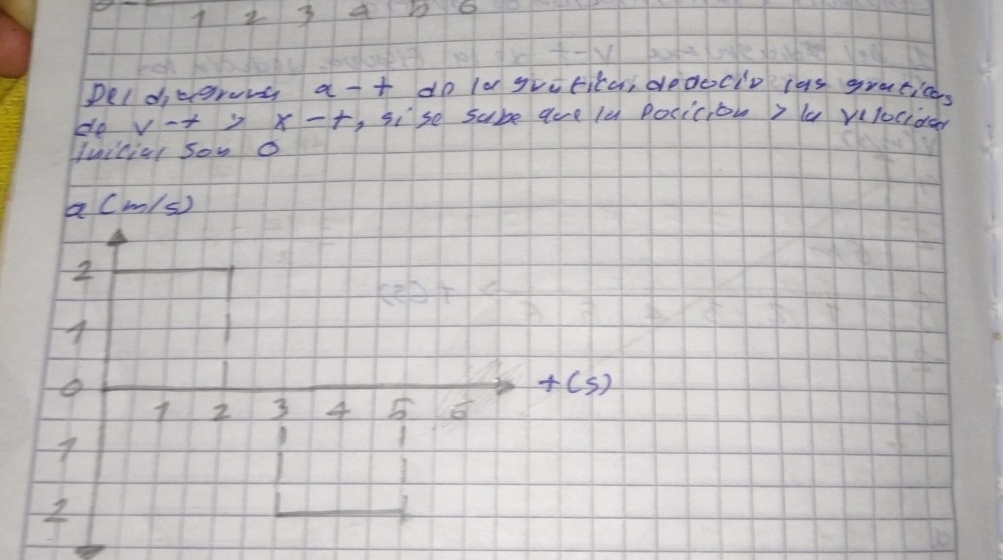 0 1 2 3 4 5 6
Del diagrama a-t de la grafica, deducir las graficas
de v-t y x-t, si se sabe que la pocicion y la velocidad
inicial son 0
a (m/s)
2
1
0 t(s)
1 2 3 4 5 6
1
2